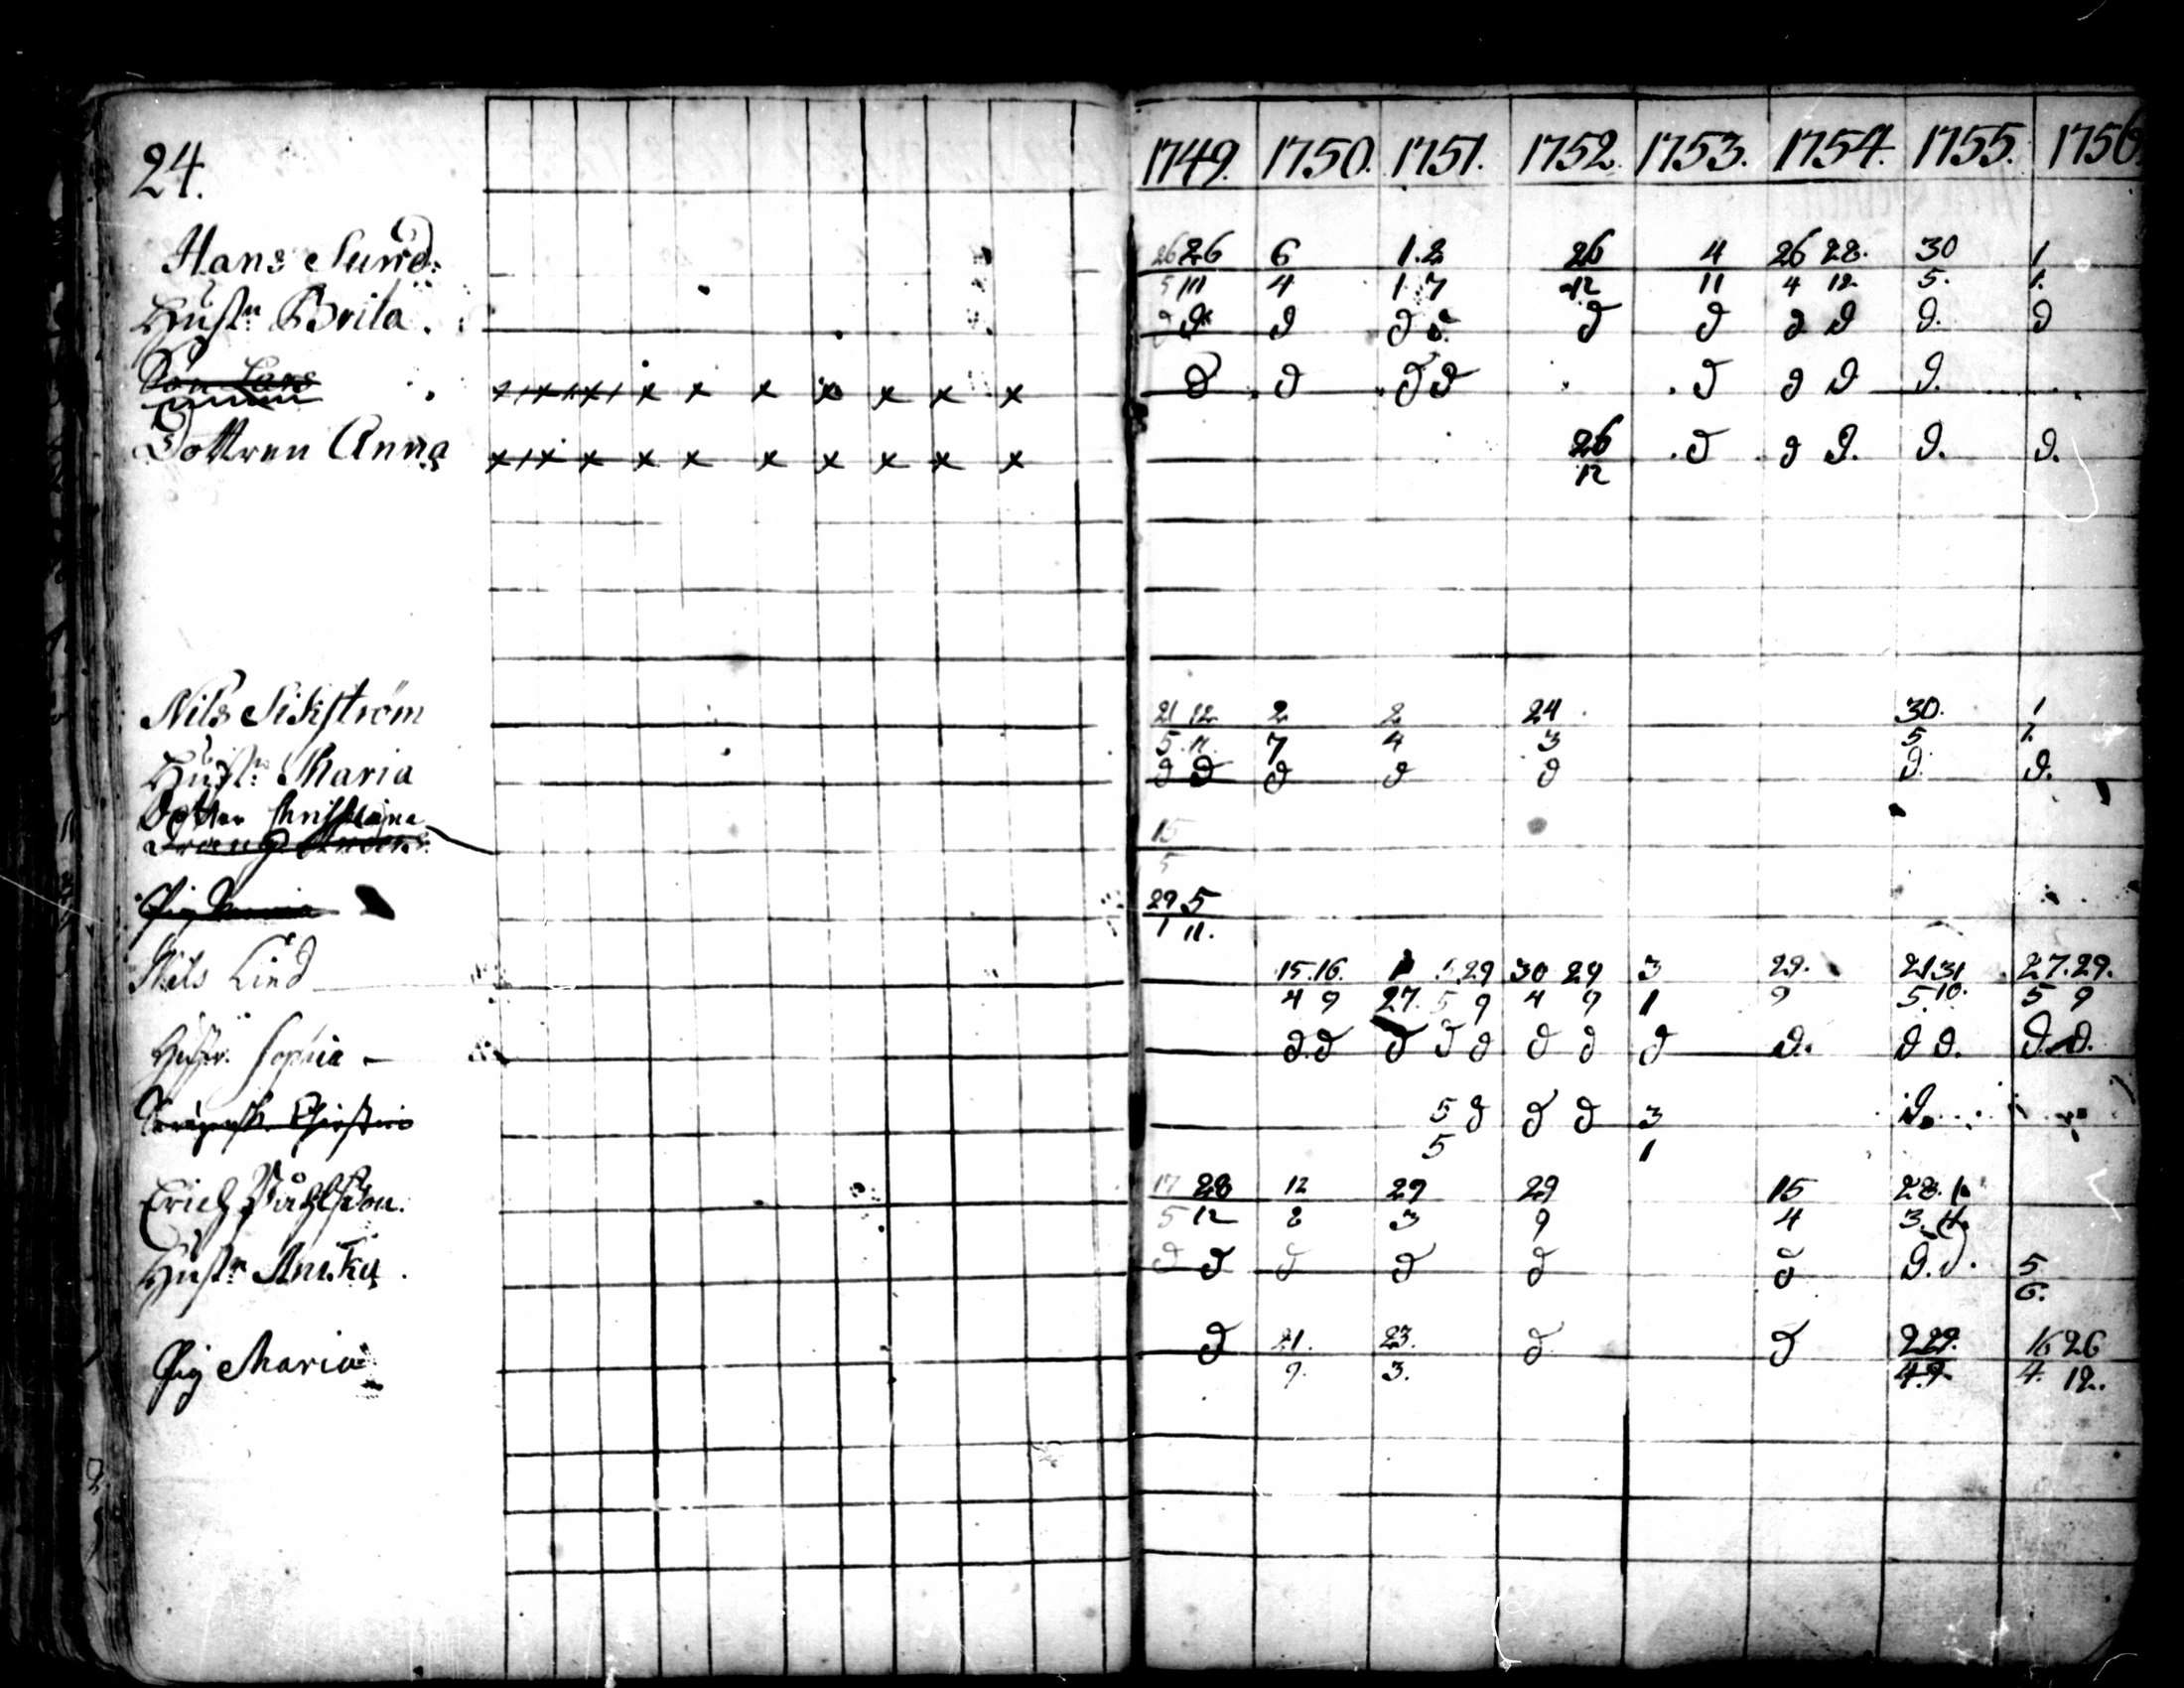 24.
1749. 1750. 1751. 1752. 1753. 1754. 1755. 1756.
Hans Sund. 26 26 6 1.2 26 4 26 28. 30 1
5 11 4 1 7 12 11 4 12. 5. 1.
Hustr Brita. d d d d d d d d d d. d
Son Lars x x x x x x x x x x x d d d d d d d d.
Dottren Anna x x x x x x x x x x x 26 d d d. d. d.
12
Nils Sikström 21 12 2 2 24 30. 1
5. 11. 7 4 3 5 1.
Hustr Maria d d d d d d. d.
Dotter Christina
Dräng Anders. 15
5
Pig 29 5
1 11.
Nils Lind 15.16. 1 5 29 30 29 3 29. 21 31 27.29.
4 9 27. 5 9 4 9 1 9 5. 10. 5 9
Hustr. Sophia d. d d d d d d d d. d d. d. d.
5 d d d 3 d.
5 1
Erich Påhlson. 17 28 12 29 29 15 28. 1
5 12 8 3 9 4 3. 4.
Hustr Anika. d d d d d d d. d. 5
6.
Pig Maria d 21. 23. d d 2 29. 16 26
9. 3. 4. 9. 4. 12.